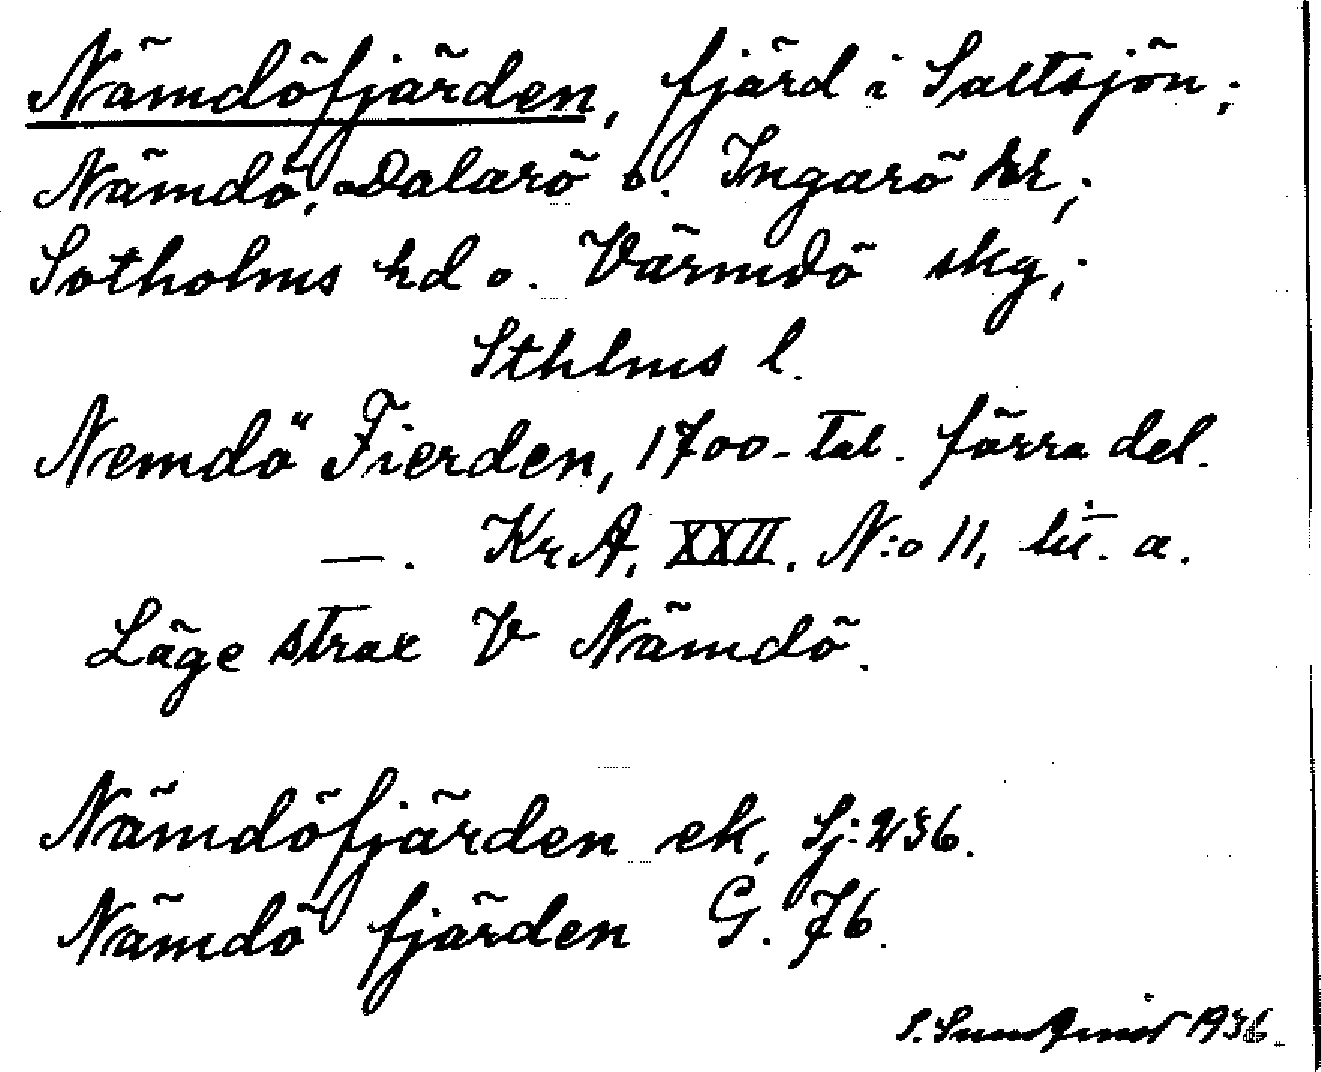 Nämdöfjärden, fjärd i Saltsjön;
Nämdö, Dalarö o. Ingarö kr;
Sotholms hd o. Värmdö skg;
Sthlms l.
Nemdö Fierden, 1700-tal. förra del.
—. KrA, XXII. N:o 11, lit. a.
Läge strax V Nämdö.
Nämdöfjärden ek, Sj: 236.
Nämdö fjärden G. 76.
S. 1936.